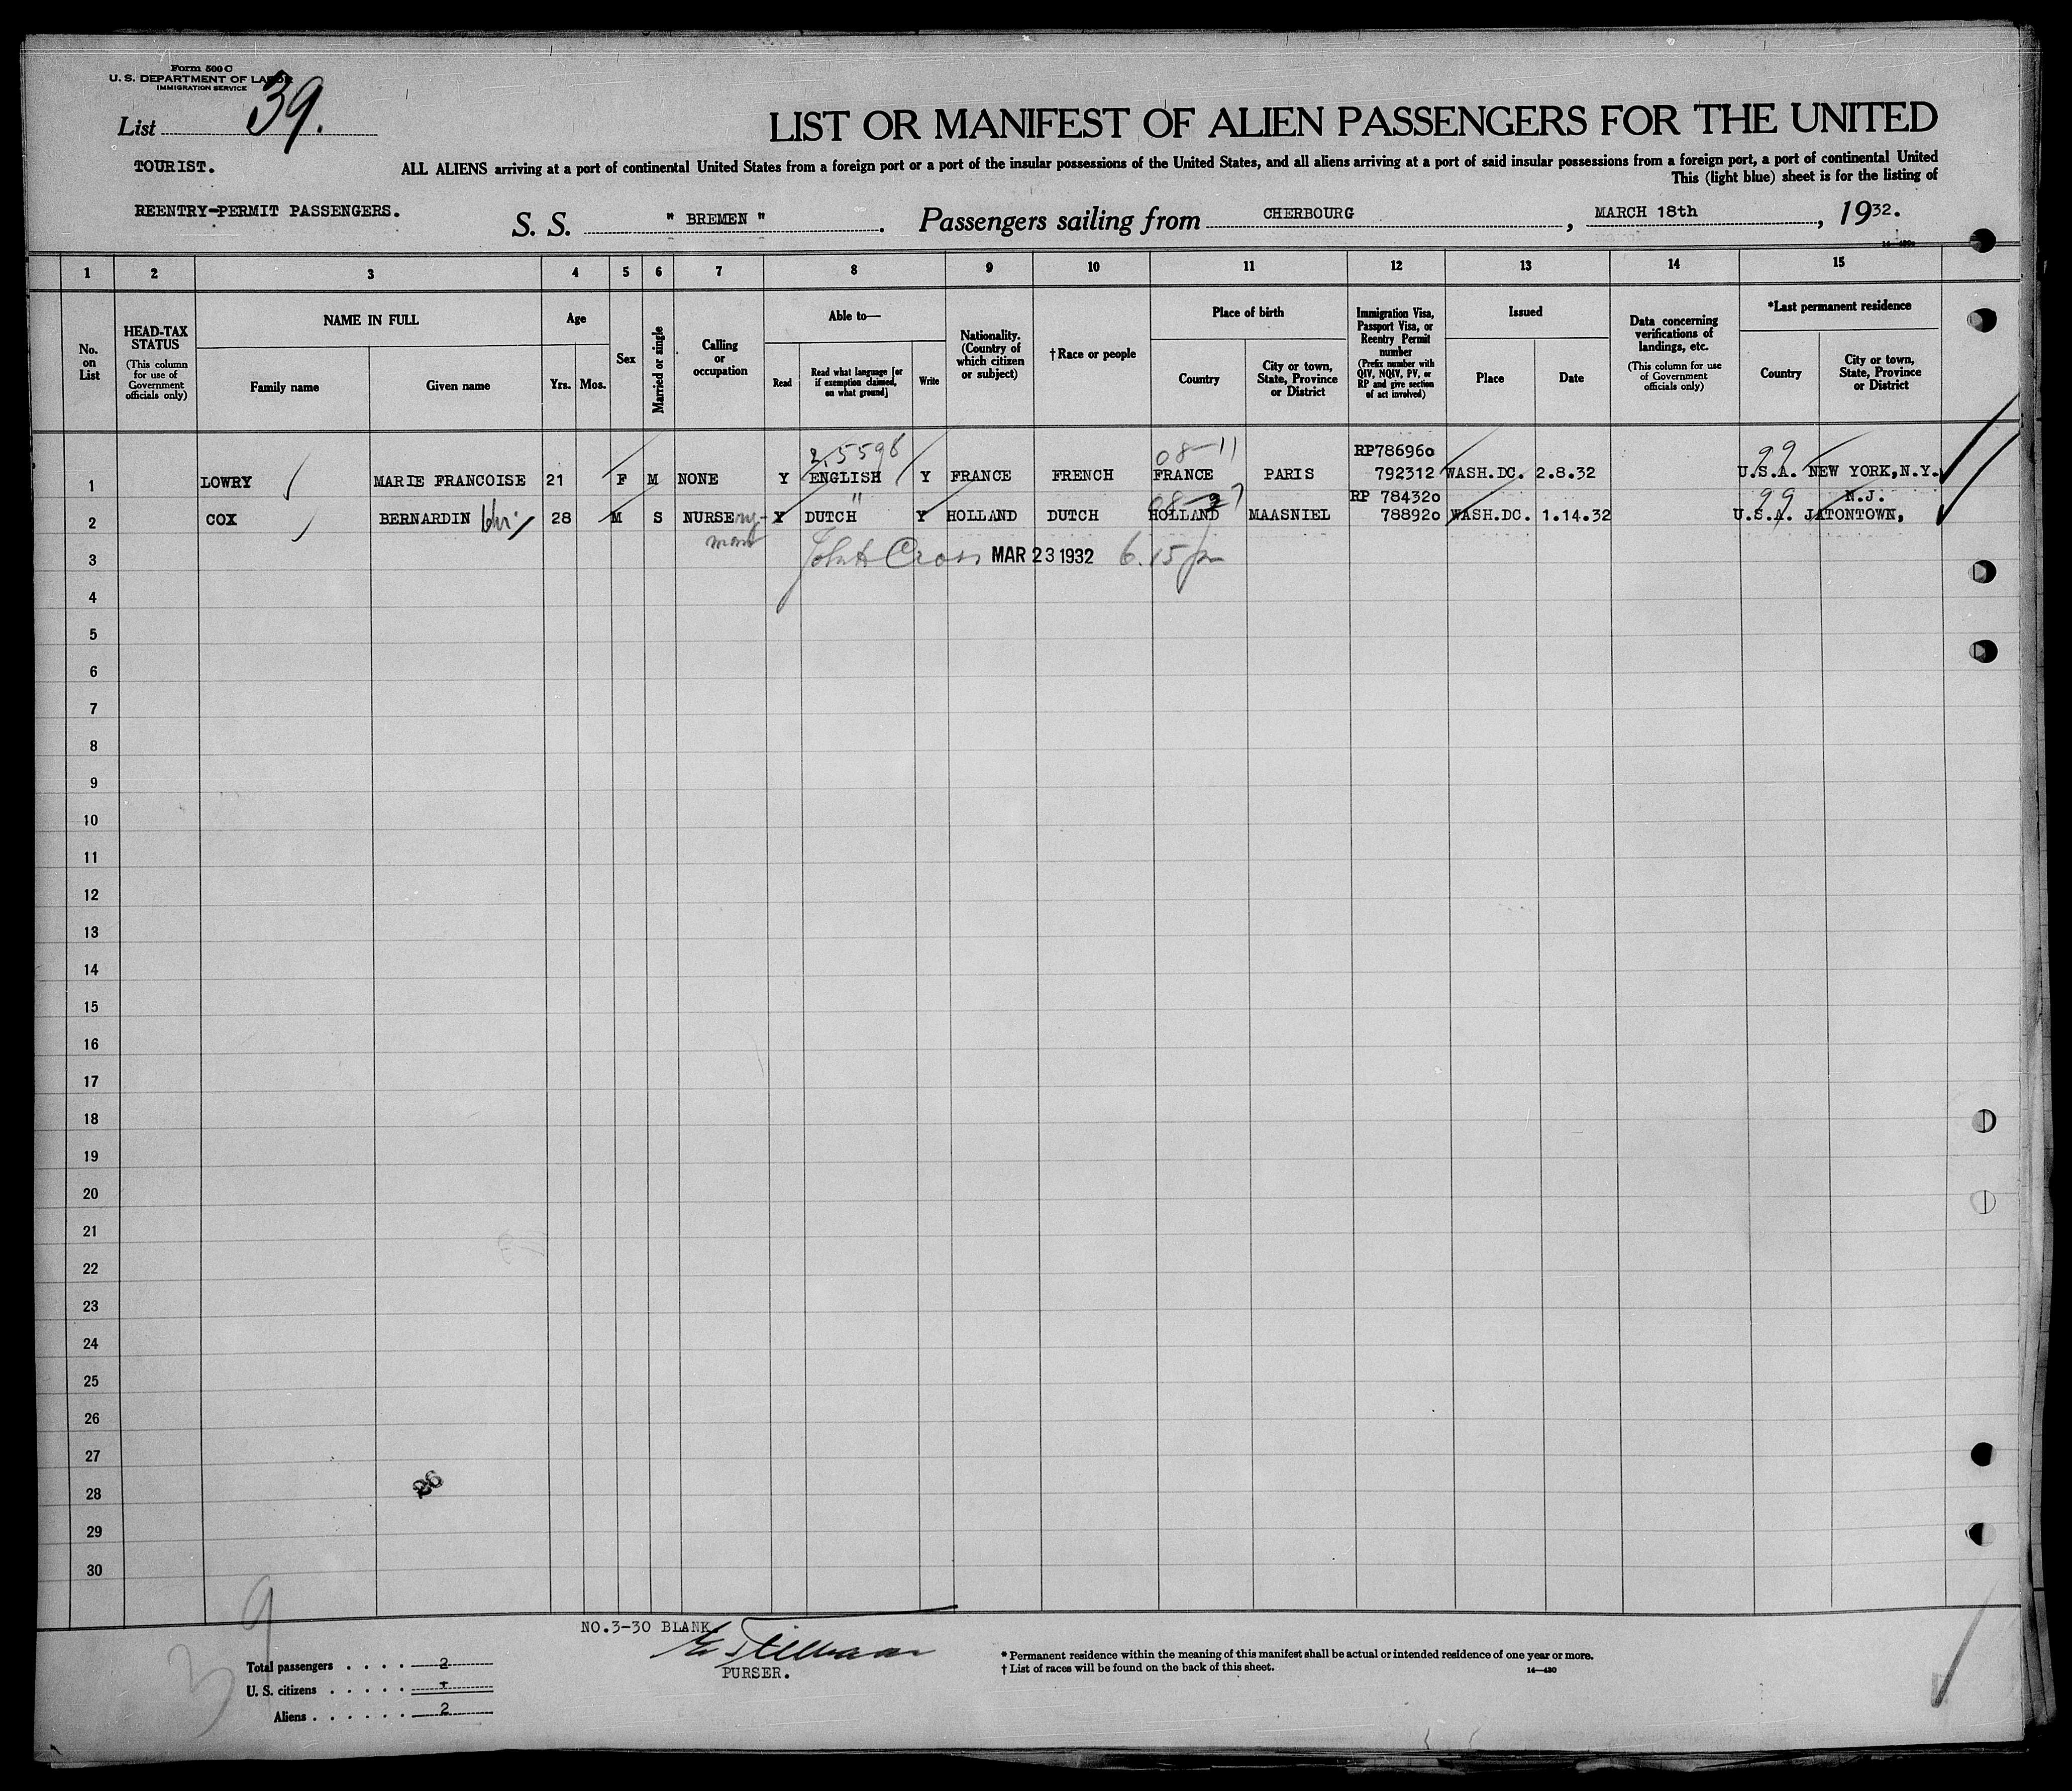 Form 500 C
U. S. DEPARTMENT OF LABOR
IMMIGRATION SERVICE
List 39.
LIST OR MANIFEST OF ALIEN PASSENGERS FOR THE UNITED
TOURIST.
ALL ALIENS arriving at a port of continental United States from a foreign port or a port of the insular possessions of the United States, and all aliens arriving at a port of said insular possessions from a foreign port, a port of continental United
This (light blue) sheet is for the listing of
REENTRY-PERMIT PASSENGERS.
S. S. " BREMEN ". Passengers sailing from CHERBOURG, MARCH 18th, 1932.
1 2 3 4 5 6 7 8 9 10 11 12 13 14 15
No. on List
HEAD-TAX STATUS (This column for use of Government officials only)
NAME IN FULL
Family name
Given name
Age
Yrs. Mos.
Sex
Married or single
Calling or occupation
Able to—
Read
Read what language [or if exemption claimed, on what ground]
Write
Nationality. (Country of which citizen or subject)
†Race or people
Place of birth
Country
City or town, State, Province or District
Immigration Visa, Passport Visa, or Reentry Permit number (Prefix number with QIV, NQIV, PV, or RP and give section of act involved)
Issued
Place
Date
Data concerning verifications of landings, etc. (This column for use of Government officials only)
*Last permanent residence
Country
City or town, State, Province or District
2,5598 08-11 RP786960 99
1 LOWRY MARIE FRANCOISE 21 F M NONE Y ENGLISH Y FRANCE FRENCH FRANCE PARIS 792312 WASH.DC. 2.8.32 U.S.A. NEW YORK,N.Y.
" RP 784320 99 N.J.
2 COX BERNARDIN 28 M S NURSE Y DUTCH Y HOLLAND DUTCH HOLLAND MAASNIEL 788920 WASH.DC. 1.14.32 U.S.A. JATONTOWN,
3 John Cross MAR 23 1932 6.15 pm
4
5
6
7
8
9
10
11
12
13
14
15
16
17
18
19
20
21
22
23
24
25
26
27
28 26
29
30
NO.3-30 BLANK.
PURSER.
39
Total passengers . . . . 2
U. S. citizens . . . . .
Aliens . . . . . . 2
* Permanent residence within the meaning of this manifest shall be actual or intended residence of one year or more.
† List of races will be found on the back of this sheet.
14—430